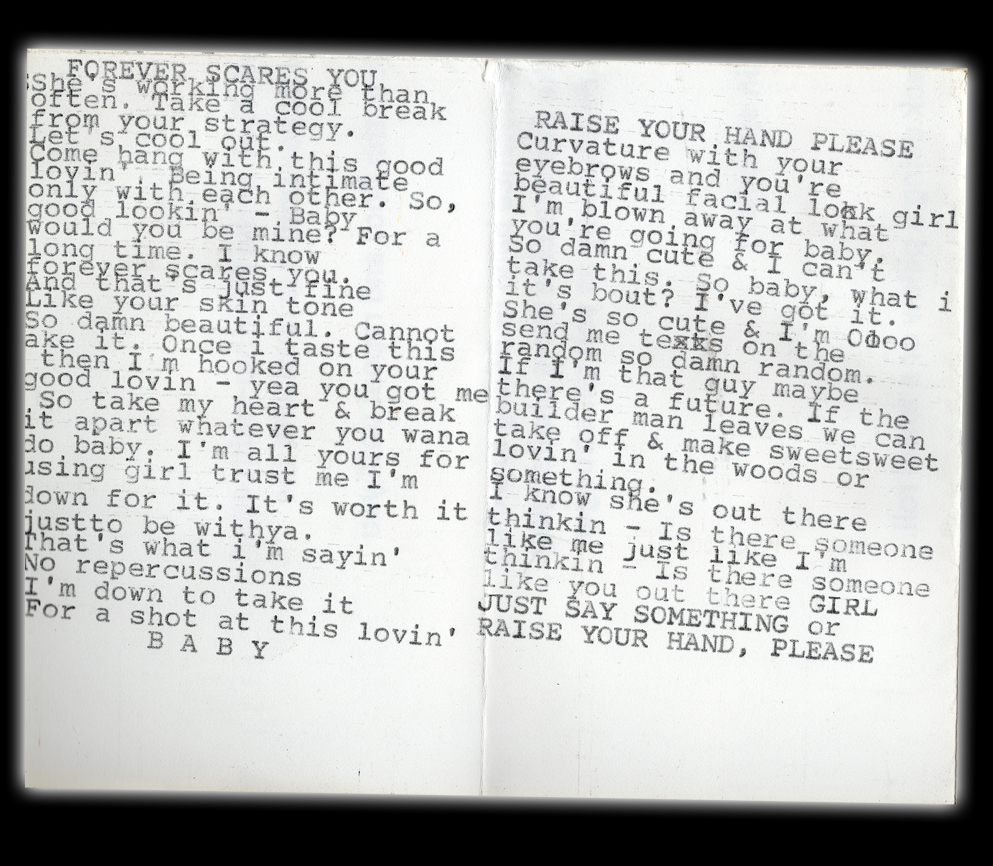 FOREVER SCARES YOU
She's working more than
often. Take a cool break
from your strategy.
Let's cool out.
Come hang with this good
lovin'. Being intimate
only with each other. So,
good lookin' - Baby
would you be mine? For a
long time. I know
forever scares you.
And that's just fine
Like your skin tone
So damn beautiful. Cannot
ake it. Once i taste this
then I'm hooked on your
good lovin - yea you got me
So take my heart & break
it apart whatever you wana
do baby. I'm all yours for
using girl trust me I'm
down for it. It's worth it
justto be withya.
That's what i'm sayin'
No repercussions
I'm down to take it
For a shot at this lovin'
B A B Y
RAISE YOUR HAND PLEASE
Curvature with your
eyebrows and you're
beautiful facial look girl
I'm blown away at what
you're going for baby.
So damn cute & I can't
take this. So baby, what i
it's bout? I've got it.
She's so cute & I'm
send me texts on the
random so damn random.
If I'm that guy maybe
there's a future. If the
builder man leaves we can
take off & make sweetsweet
lovin' in the woods or
something.
I know she's out there
thinkin - Is there someone
like me just like I'm
thinkin - Is there someone
like you out there GIRL
JUST SAY SOMETHING or
RAISE YOUR HAND, PLEASE